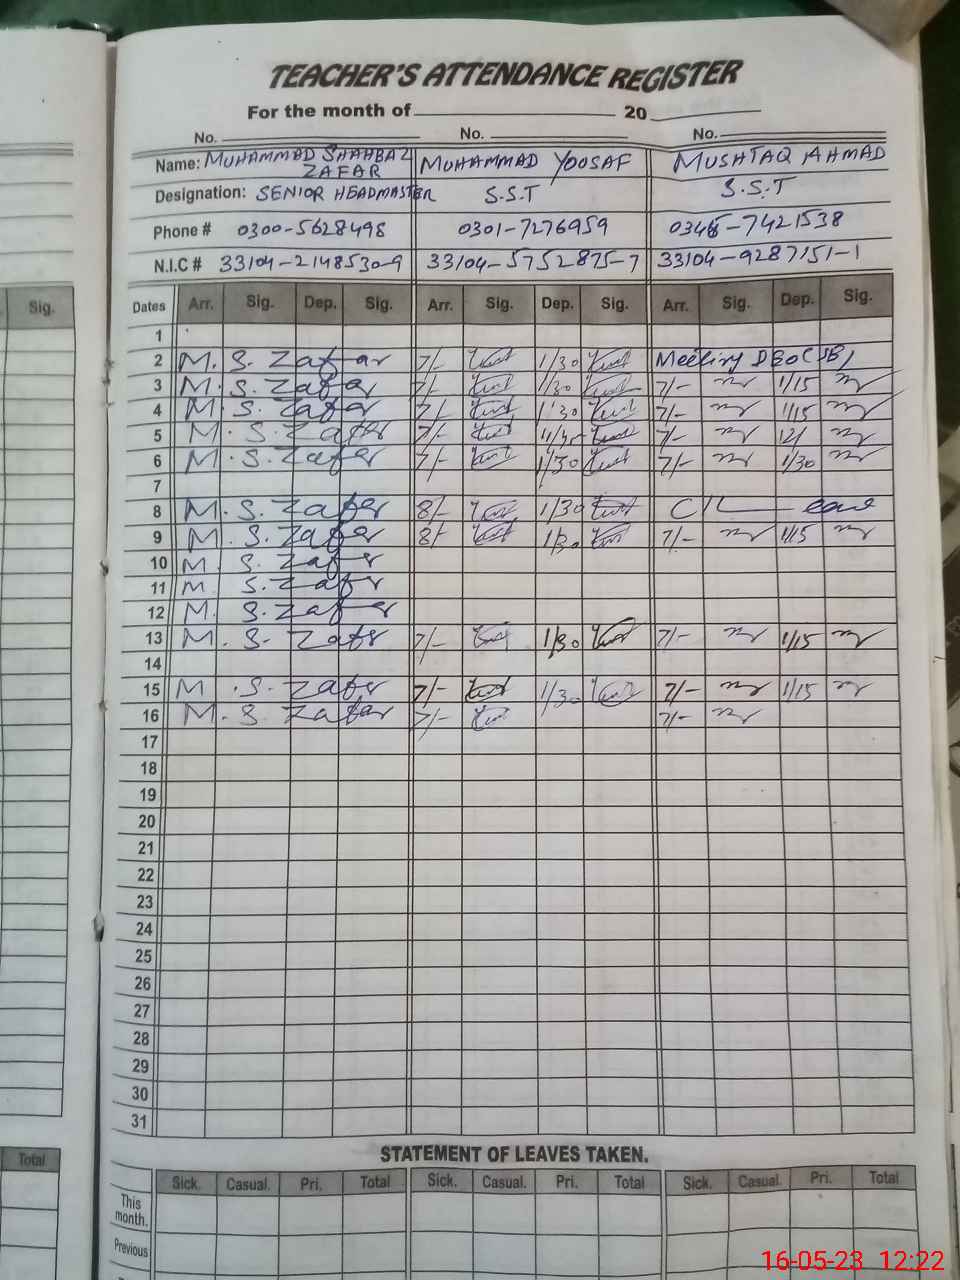 TEACHER'S ATTENDANCE REGISTER
For the month of 20
No. No. No.
Name: MUHAMMAD SHAHBAZ ZAFAR MUHAMMAD YOOSAF MUSHTAQ AHMAD
Designation: SENIOR HEADMASTER S.S.T S.S.T
Phone # 0300-5628498 0301-7276959 0345-7421538
N.I.C # 33104-2148530-9 33104-5752875-7 33104-9287151-1
Sig. Dates Arr. Sig. Dep. Sig. Arr. Sig. Dep. Sig. Arr. Sig. Dep. Sig.
1
2 M. S. Zafar 7/- 1/30 Meeting
3 M. S. Zafar 7/- 1/30 7/- 1/15
4 M. S. Zafar 7/- 1/30 7/- 1/15
5 M. S. Zafar 7/- 7/- 12/
6 M. S. Zafar 7/- 1/30 7/- 1/30
7
8 M. S. Zafar 8/- 1/30 C/L eave
9 M. S. Zafar 8/- 1/30 7/- 1/15
10 M. S. Zafar
11 M. S. Zafar
12 M. S. Zafar
13 M. S. Zafar 7/- 1/30 7/- 1/15
14
15 M. S. Zafar 7/- 1/30 7/- 1/15
16 M. S. Zafar 7/- 7/-
17
18
19
20
21
22
23
24
25
26
27
28
29
30
31
STATEMENT OF LEAVES TAKEN.
Total Sick. Casual. Pri. Total Sick. Casual. Pri. Total Sick. Casual. Pri. Total
This
month.
Previous
16-05-23 12:22